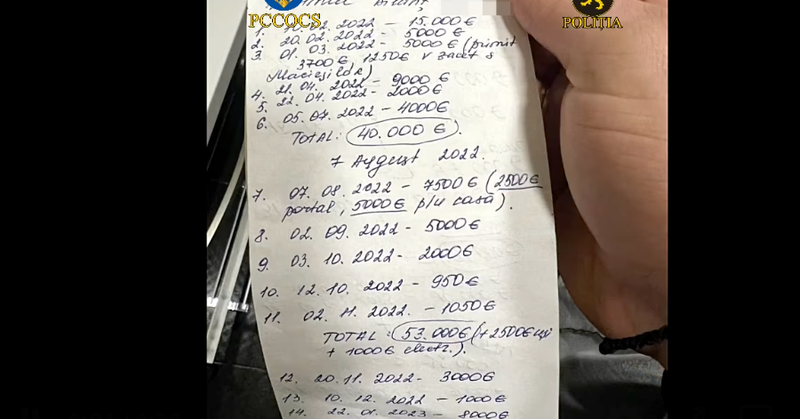 PCCOCS
POLIȚIA
1. 2022 – 15.000 €
2. 20.02.2022 – 5000 €
3. 01.03.2022 – 5000 € (primit
3700 €, 1250 €
4. 21.04.2022 – 9000 €
5. 22.04.2022 – 2000 €
6. 05.07.2022 – 4000 €
TOTAL: 40.000 €.
7 August 2022.
7. 07.08.2022 – 7500 € (2500 €
portal, 5000 € p/u casă).
8. 02.09.2022 – 5000 €
9. 03.10.2022 – 2000 €
10. 12.10.2022 – 950 €
11. 02.11.2022. – 1050 €
TOTAL: 53.000 € (+2500 €
+ 1000 € electr.).
12. 20.11.2022 – 3000 €
13. 10.12.2022 – 1000 €
14. 22.01.2023 – 8000 €